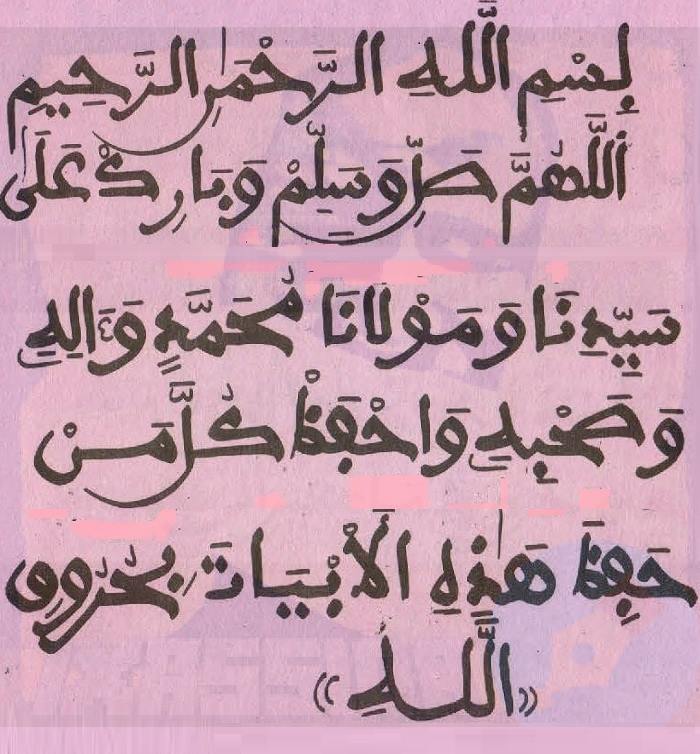 بِسْمِ اللَّهِ الرَّحْمَٰنِ الرَّحِيمِ
اَللَّهُمَّ صَلِّ وَسَلِّمْ وَبَارِكْ عَلَى
سَيِّدِنَا وَمَوْلَانَا مُحَمَّدٍ وَءَالِهِ
وَصَحْبِهِ وَاحْفَظْ كُلَّ مَنْ
حَفِظَ هَٰذِهِ الْأَبْيَاتَ بِحُرُوفِ
«اللَّهِ»